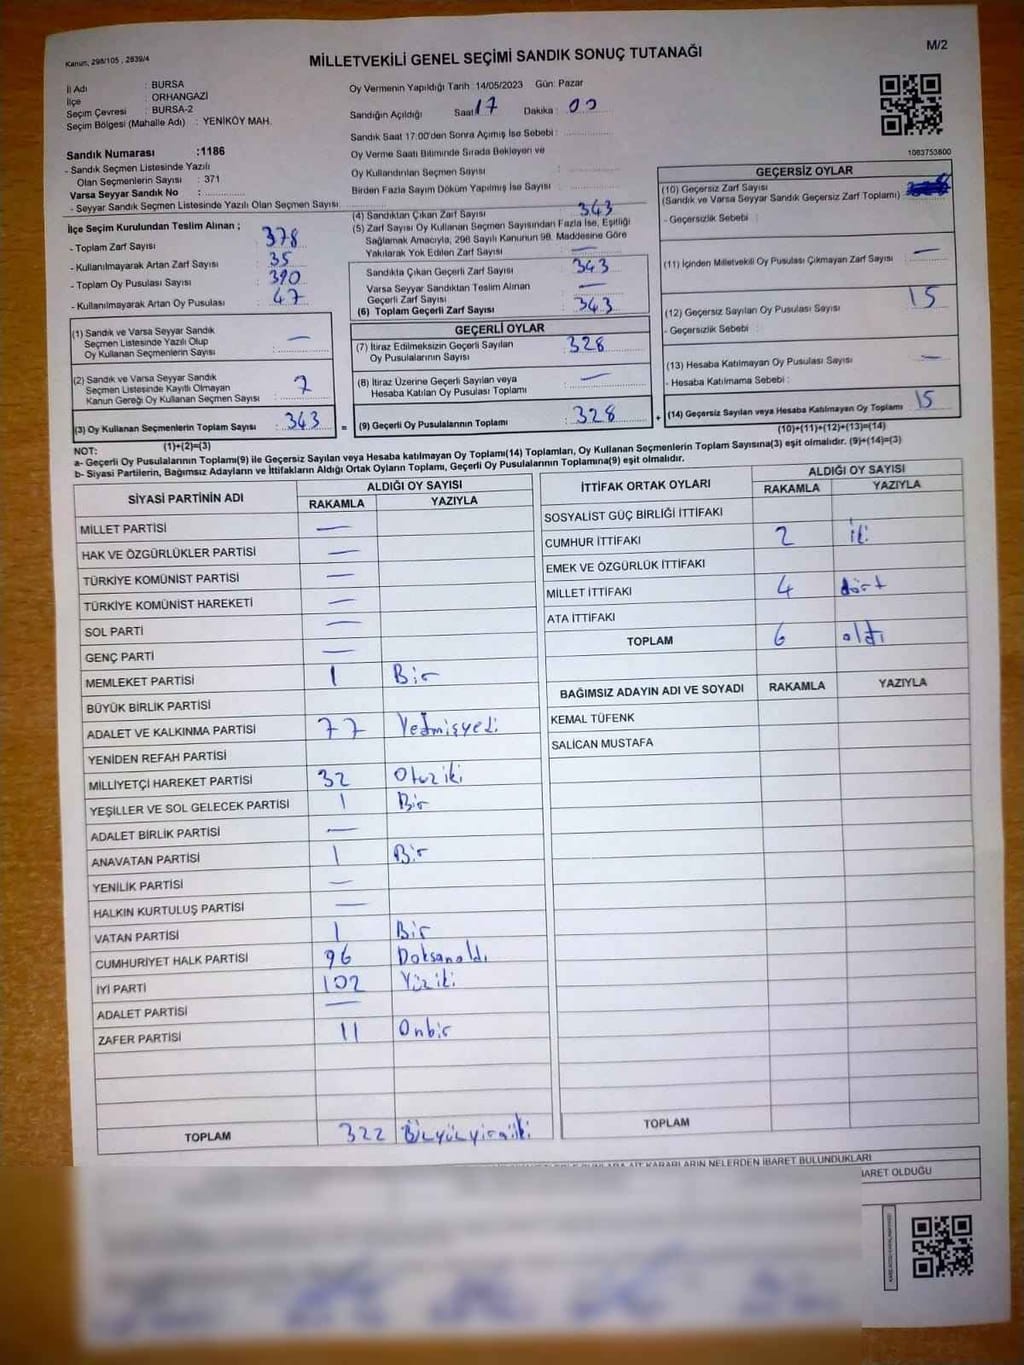 Kanun, 298/105 , 2839/4
MİLLETVEKİLİ GENEL SEÇİMİ SANDIK SONUÇ TUTANAĞI
M/2
İl Adı : BURSA
İlçe : ORHANGAZİ
Seçim Çevresi : BURSA-2
Seçim Bölgesi (Mahalle Adı) : YENİKÖY MAH.
Oy Vermenin Yapıldığı Tarih : 14/05/2023 Gün: Pazar
Sandığın Açıldığı Saat : 17 Dakika : 00
Sandık Saat 17:00'den Sonra Açımış İse Sebebi :
Oy Verme Saati Bitiminde Sırada Bekleyen ve
Oy Kullandırılan Seçmen Sayısı :
Birden Fazla Sayım Döküm Yapılmış İse Sayısı :
1083753800
Sandık Numarası :1186
- Sandık Seçmen Listesinde Yazılı
Olan Seçmenlerin Sayısı : 371
Varsa Seyyar Sandık No :
- Seyyar Sandık Seçmen Listesinde Yazılı Olan Seçmen Sayısı
İlçe Seçim Kurulundan Teslim Alınan ;
- Toplam Zarf Sayısı : 378
- Kullanılmayarak Artan Zarf Sayısı : 35
- Toplam Oy Pusulası Sayısı : 390
- Kullanılmayarak Artan Oy Pusulası : 47
(1) Sandık ve Varsa Seyyar Sandık
Seçmen Listesinde Yazılı Olup
Oy Kullanan Seçmenlerin Sayısı : —
(2) Sandık ve Varsa Seyyar Sandık
Seçmen Listesinde Kayıtlı Olmayan
Kanun Gereği Oy Kullanan Seçmen Sayısı : 7
(3) Oy Kullanan Seçmenlerin Toplam Sayısı : 343
(1)+(2)=(3)
(4) Sandıktan Çıkan Zarf Sayısı : 343
(5) Zarf Sayısı Oy Kullanan Seçmen Sayısından Fazla İse, Eşitliği
Sağlamak Amacıyla, 298 Sayılı Kanunun 98. Maddesine Göre
Yakılarak Yok Edilen Zarf Sayısı : —
Sandıkta Çıkan Geçerli Zarf Sayısı : 343
Varsa Seyyar Sandıktan Teslim Alınan
Geçerli Zarf Sayısı : —
(6) Toplam Geçerli Zarf Sayısı : 343
GEÇERLİ OYLAR
(7) İtiraz Edilmeksizin Geçerli Sayılan
Oy Pusulalarının Sayısı : 328
(8) İtiraz Üzerine Geçerli Sayılan veya
Hesaba Katılan Oy Pusulası Toplamı : —
= (9) Geçerli Oy Pusulalarının Toplamı : 328
GEÇERSİZ OYLAR
(10) Geçersiz Zarf Sayısı
(Sandık ve Varsa Seyyar Sandık Geçersiz Zarf Toplamı) :
- Geçersizlik Sebebi :
(11) İçinden Milletvekili Oy Pusulası Çıkmayan Zarf Sayısı : —
(12) Geçersiz Sayılan Oy Pusulası Sayısı : 15
- Geçersizlik Sebebi :
(13) Hesaba Katılmayan Oy Pusulası Sayısı : —
- Hesaba Katılmama Sebebi :
+ (14) Geçersiz Sayılan veya Hesaba Katılmayan Oy Toplamı : 15
(10)+(11)+(12)+(13)=(14)
NOT:
a- Geçerli Oy Pusulalarının Toplamı(9) ile Geçersiz Sayılan veya Hesaba katılmayan Oy Toplamı(14) Toplamları, Oy Kullanan Seçmenlerin Toplam Sayısına(3) eşit olmalıdır. (9)+(14)=(3)
b- Siyasi Partilerin, Bağımsız Adayların ve İttifakların Aldığı Ortak Oyların Toplamı, Geçerli Oy Pusulalarının Toplamına(9) eşit olmalıdır.
SİYASİ PARTİNİN ADI ALDIĞI OY SAYISI
RAKAMLA YAZIYLA
MİLLET PARTİSİ —
HAK VE ÖZGÜRLÜKLER PARTİSİ —
TÜRKİYE KOMÜNİST PARTİSİ —
TÜRKİYE KOMÜNİST HAREKETİ —
SOL PARTİ —
GENÇ PARTİ —
MEMLEKET PARTİSİ 1 Bir
BÜYÜK BİRLİK PARTİSİ
ADALET VE KALKINMA PARTİSİ 77 Yetmişyedi
YENİDEN REFAH PARTİSİ
MİLLİYETÇİ HAREKET PARTİSİ 32 Otuziki
YEŞİLLER VE SOL GELECEK PARTİSİ 1 Bir
ADALET BİRLİK PARTİSİ —
ANAVATAN PARTİSİ 1 Bir
YENİLİK PARTİSİ —
HALKIN KURTULUŞ PARTİSİ —
VATAN PARTİSİ 1 Bir
CUMHURİYET HALK PARTİSİ 96 Doksanaldı
İYİ PARTİ 102 Yüziki
ADALET PARTİSİ —
ZAFER PARTİSİ 11 Onbir
TOPLAM 322 Üçyüzyirmiiki
İTTİFAK ORTAK OYLARI ALDIĞI OY SAYISI
RAKAMLA YAZIYLA
SOSYALİST GÜÇ BİRLİĞİ İTTİFAKI
CUMHUR İTTİFAKI 2 iki
EMEK VE ÖZGÜRLÜK İTTİFAKI
MİLLET İTTİFAKI 4 dört
ATA İTTİFAKI
TOPLAM 6 altı
BAĞIMSIZ ADAYIN ADI VE SOYADI RAKAMLA YAZIYLA
KEMAL TÜFENK
SALİCAN MUSTAFA
TOPLAM
KARARLARIN NELERDEN İBARET BULUNDUKLARI
BARET OLDUĞU